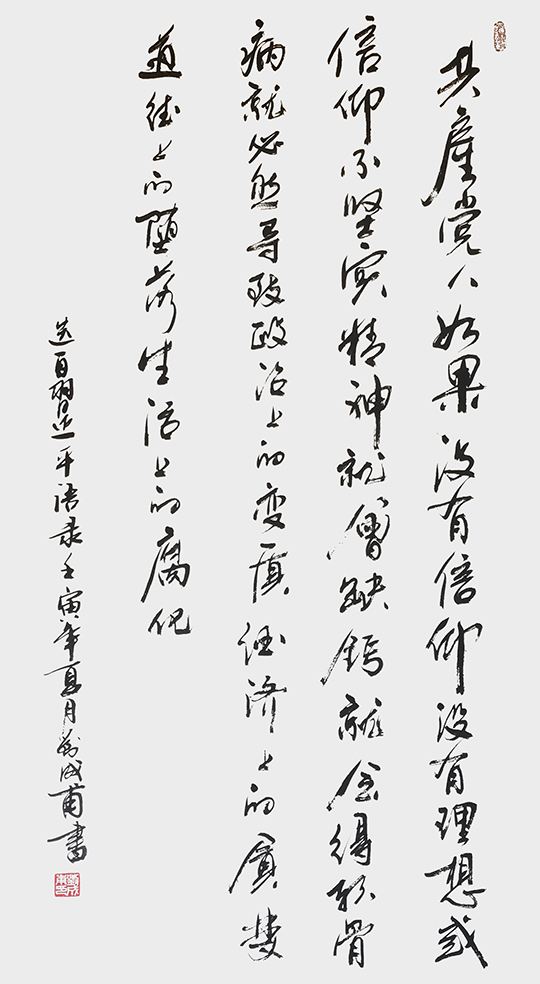 共產党人如果没有信仰没有理想或
信仰不坚实精神就會缺钙就会得软骨
病就必然导致政治上的变质经济上的贪婪
道德上的堕落生活上的腐化
选自習近平语录壬寅年夏月成甫書